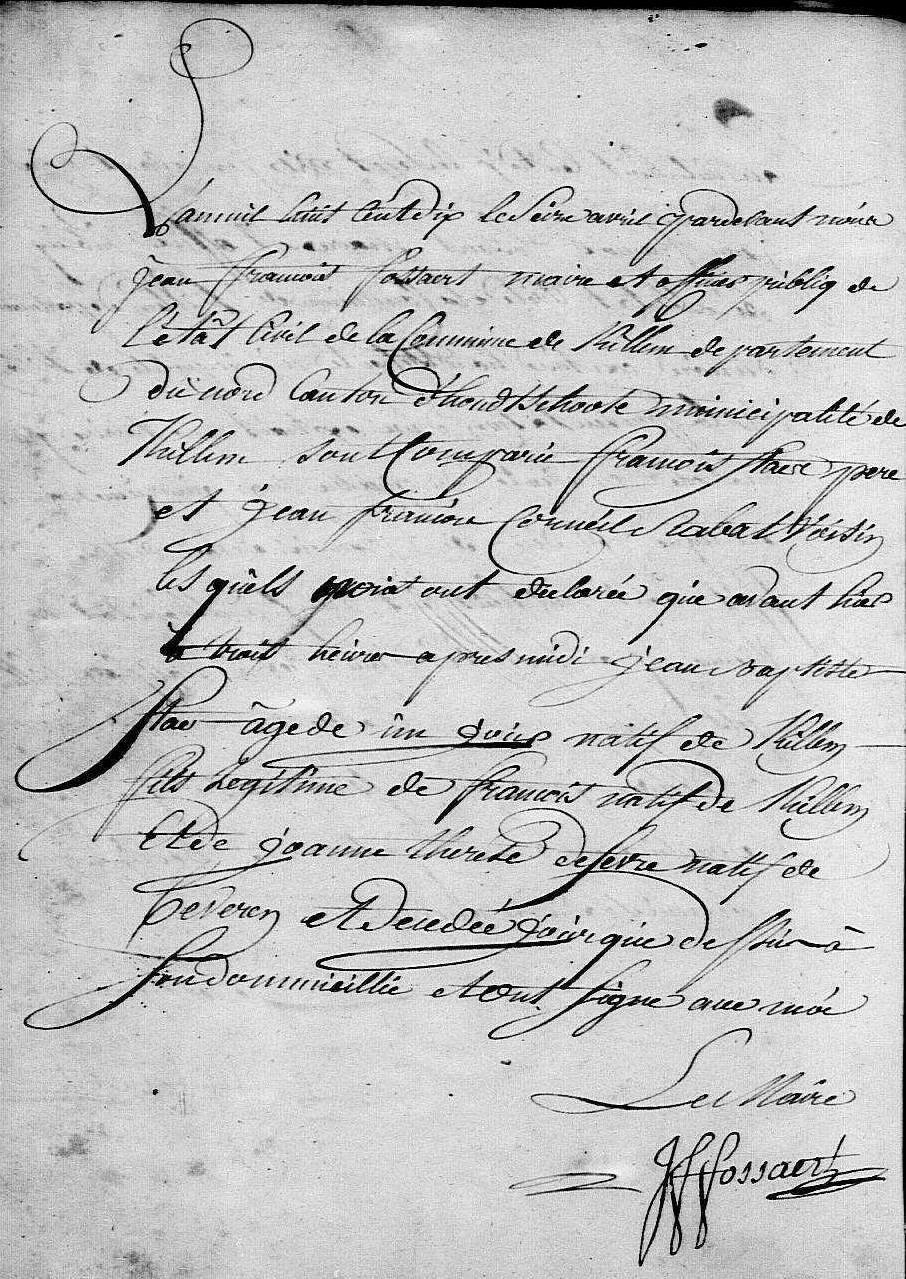 L'anmil huit Cent dix le Seize avril pardevant nous
Jean François Fossaert maire et officier publiq de
L'etât Civil de la Commune de Killem departement
du nord Canton d'hondtschoote municipalité de
Killem sont Comparu François Stae pere
et jean Corneil Rabat Voisin
les quels ont declarée que avant hier
à trois heures apres midi jean Baptiste
Stae âgede un jour natif de Killem
fils Legitime de François natif de Killem
Et de joanne therese defevre natif de
Beveren et decedée jour que dessus â
Son domicillie et ont Signe avec moi
Le Maire
JF Fossaert